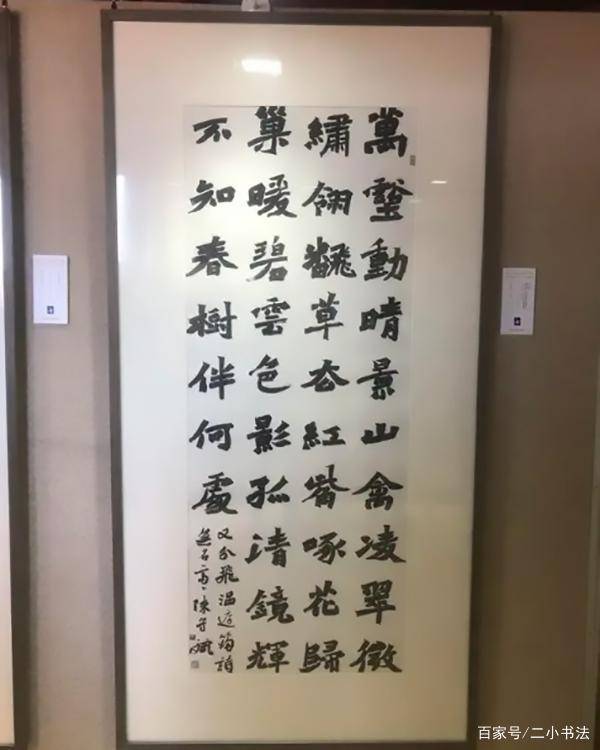 萬壑動晴景山禽凌翠微
繡翎飜草厺紅觜啄花歸
巢暖碧雲色影孤清鏡輝
不知春樹伴何處
又分飛温庭筠詩
陳守斌
百家号/二小书法